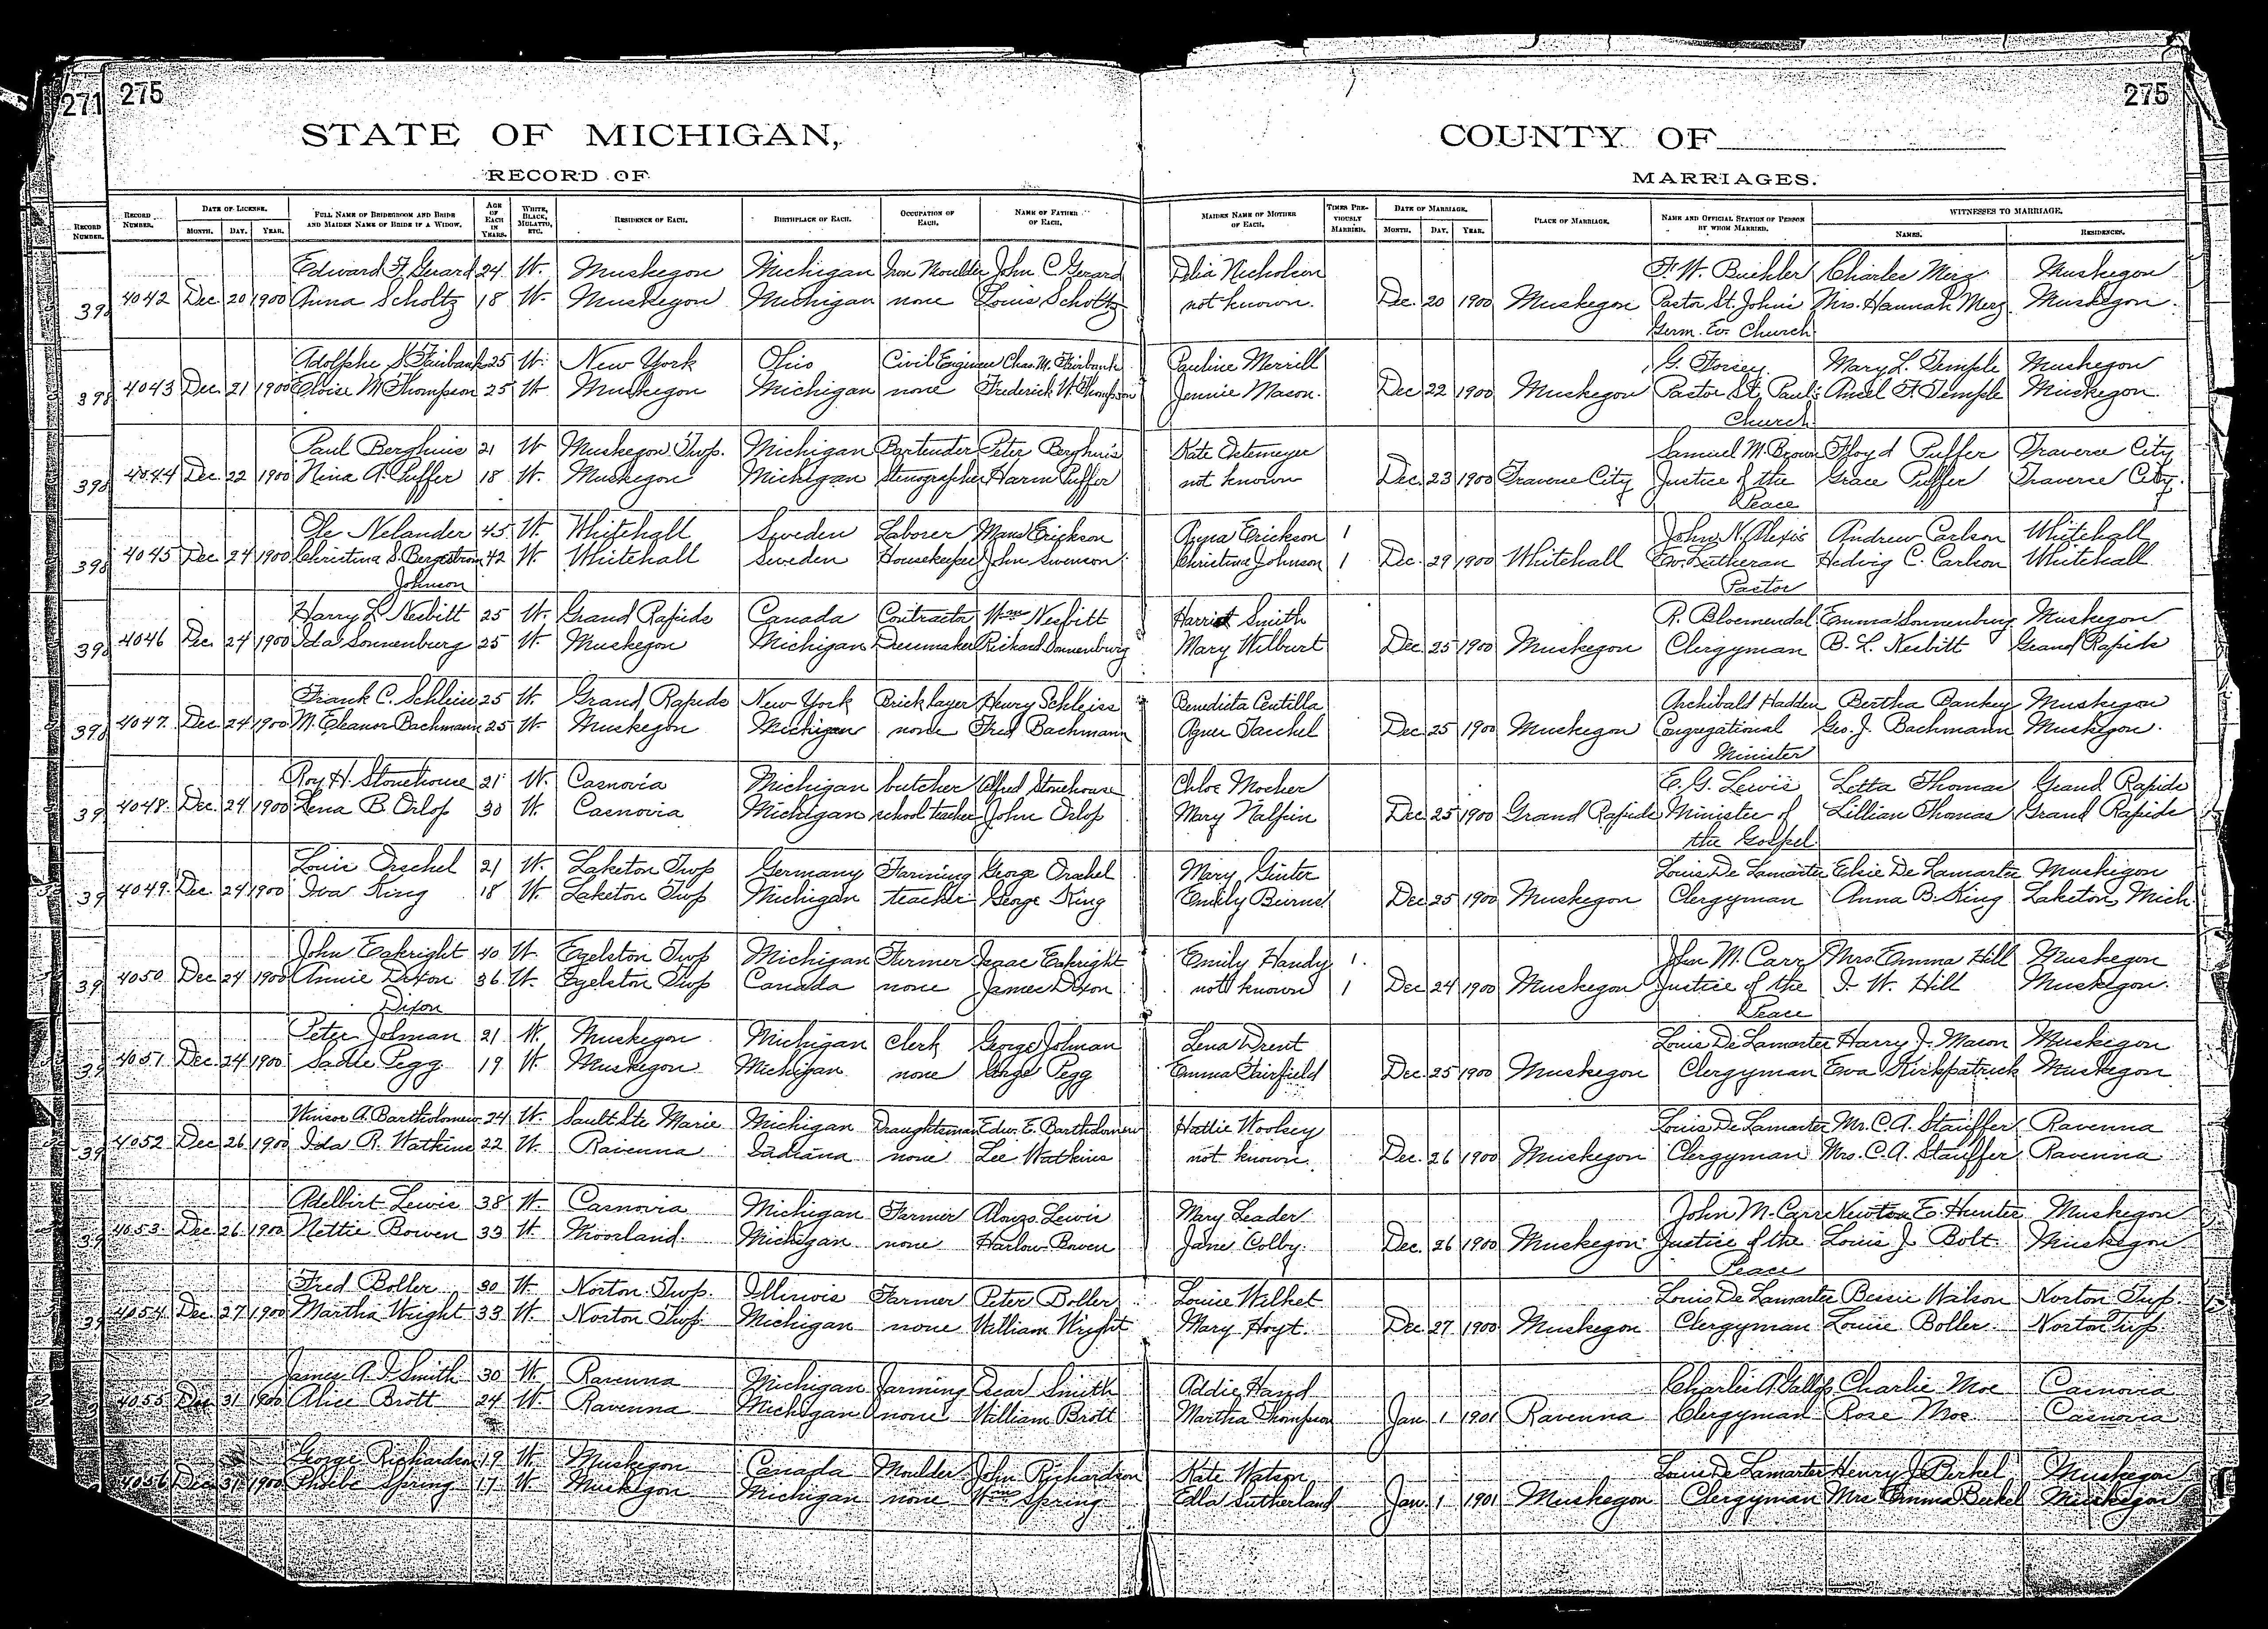 271 275 275
STATE OF MICHIGAN, COUNTY OF
RECORD OF MARRIAGES.
RECORD NUMBER. RECORD NUMBER. DATE OF LICENSE. MONTH. DAY. YEAR. FULL NAME OF BRIDEGROOM AND BRIDE AND MAIDEN NAME OF BRIDE IF A WIDOW. AGE OF EACH IN YEARS. WHITE, BLACK, MULATTO, ETC. RESIDENCE OF EACH. BIRTHPLACE OF EACH. OCCUPATION OF EACH. NAME OF FATHER OF EACH. MAIDEN NAME OF MOTHER OF EACH. TIMES PREVIOUSLY MARRIED. DATE OF MARRIAGE. MONTH. DAY. YEAR. PLACE OF MARRIAGE. NAME AND OFFICIAL STATION OF PERSON BY WHOM MARRIED. WITNESSES TO MARRIAGE. NAMES. RESIDENCES.
Edward F. Gerard 24 W. Muskegon Michigan Iron Moulder John C. Gerard Delia Nicholson F. W. Buehler Charles Merz Muskegon
4042 Dec. 20 1900 Anna Scholtz 18 W. Muskegon Michigan none Louis Scholtz not known. Dec. 20 1900 Muskegon Pastor St. John's Mrs. Hannah Merz Muskegon.
Germ. Ev. Church
Adolphe Fairbank 25 W. New York Ohio Civil Engineer Chas. M. Fairbank Pauline Merrill G. Forsey Mary L. Temple Muskegon
4043 Dec. 21 1900 Eloise M Thompson 25 W Muskegon Michigan none Frederick W. Thompson Jennie Mason. Dec 22 1900 Muskegon Pastor St. Paul's Ansel F. Temple Muskegon.
Church
Paul Berghuis 21 W Muskegon Twp. Michigan Bartender Peter Berghuis Kate Ostemeyer Samuel M. Brown Floyd Puffer Traverse City
4044 Dec. 22 1900 Nina A. Puffer 18 W. Muskegon Michigan Stenographer Harm Puffer not known Dec. 23 1900 Traverse City Justice of the Grace Puffer Traverse City.
Peace
Ole Nelander 45 W. Whitehall Sweden Laborer Mans Erickson Agna Erickson 1 John N. Alexis Andrew Carlson Whitehall
4045 Dec 24 1900 Christina S. Bergstrom 42 W. Whitehall Sweden Housekeeper John Swenson Christina Johnson 1 Dec. 29 1900 Whitehall Ev. Lutheran Hedvig C. Carlson Whitehall
Johnson Pastor
Harry L. Nesbitt 25 W. Grand Rapids Canada Contractor Wm Nesbitt Harriet Smith R. Bloemendal Emma Sonnenburg Muskegon
4046 Dec. 24 1900 Ida Sonnenburg 25 W. Muskegon Michigan Dressmaker Richard Sonnenburg Mary Wilburt Dec. 25 1900 Muskegon Clergyman B. L. Nesbitt Grand Rapids
Frank C. Schleiss 25 W. Grand Rapids New York Bricklayer Henry Schleiss Benedicta Centilla Archibald Hadden Bertha Bankey Muskegon
4047. Dec 24 1900 M. Eleanor Bachmann 25 W. Muskegon Michigan none Fred Bachmann Agnes Taschel Dec 25 1900 Muskegon Congregational Geo. J. Bachmann Muskegon.
Minister
Roy H. Stonehouse 21 W. Casnovia Michigan butcher Alfred Stonehouse Chloe Mocher E. G. Lewis Letta Thomas Grand Rapids
4048. Dec. 24 1900 Lena B. Orlop 30 W. Casnovia Michigan school teacher John Orlop Mary Halpin Dec. 25 1900 Grand Rapids Minister of Lillian Thomas Grand Rapids
the Gospel
Louis Drechel 21 W. Laketon Twp Germany Farming George Drechel Mary Ginter Louis De Lamarter Elsie De Lamarter Muskegon
4049. Dec. 24 1900 Iva King 18 W. Laketon Twp Michigan teacher George King Emily Burns Dec 25 1900 Muskegon Clergyman Anna B. King Laketon, Mich.
John Eakright 40 W. Egelston Twp Michigan Farmer Isaac Eakright Emily Handy 1. John M. Carr Mrs. Emma Hill Muskegon
4050 Dec 24 1900 Annie Dixon 36 W. Egelston Twp Canada none James Dixon not known 1 Dec 24 1900 Muskegon Justice of the I. W. Hill Muskegon.
Dixon Peace
Peter Jolman 21 W. Muskegon Michigan Clerk George Jolman Lena Drent Louis De Lamarter Harry J. Mason Muskegon
4051 Dec. 24 1900 Sadie Pegg 19 W. Muskegon Michigan none George Pegg Emma Fairfield Dec. 25 1900 Muskegon Clergyman Eva Kirkpatrick Muskegon
Winsor A. Bartholomew 24 W. Sault Ste Marie Michigan Draughtsman Edw. E. Bartholomew Hattie Woolsey Louis De Lamarter Mr. C. A. Stauffer Ravenna
4052 Dec 26 1900 Ida R. Watkins 22 W. Ravenna Indiana none Lee Watkins not known. Dec. 26 1900 Muskegon Clergyman Mrs. C. A. Stauffer Ravenna
Adelbert Lewis 38 W. Casnovia Michigan Farmer Alonzo Lewis Mary Leader John M. Carr Newton E. Hunter Muskegon
4053 Dec. 26 1900 Nettie Bowen 33 W. Moorland. Michigan none Harlow Bowen Jane Colby. Dec. 26 1900 Muskegon Justice of the Louis J. Bolt Muskegon
Peace
Fred Boller 30 W. Norton Twp. Illinois Farmer Peter Boller Louise Wilket Louis De Lamarter Bessie Watson Norton Twp.
4054 Dec. 27 1900 Martha Wright 33 W. Norton Twp. Michigan none William Wright Mary Hoyt. Dec. 27 1900 Muskegon Clergyman Louise Boller Norton Twp
James A. J. Smith 30 W. Ravenna Michigan farming Oscar Smith Addie Hand Charlie A. Charlie Moe Casnovia
4055 Dec 31 1900 Alice Brott 24 W. Ravenna Michigan none William Brott Martha Thompson Jan. 1 1901 Ravenna Clergyman Rose Moe Casnovia
George Richardson 19 W. Muskegon Canada Moulder John Richardson Kate Watson Louis De Lamarter Henry J. Berkel Muskegon
4056 Dec 31 1900 Phoebe Spring 17 W. Muskegon Michigan none Wm Spring Ella Sutherland Jan. 1 1901 Muskegon Clergyman Mrs Emma Berkel Muskegon